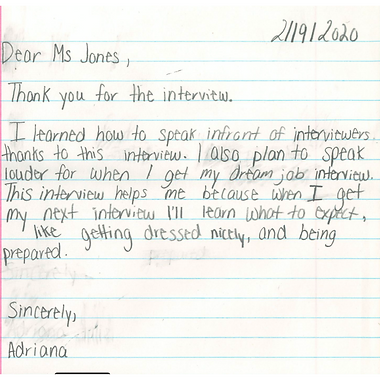 2/19/2020
Dear Ms Jones,
Thank you for the interview.
I learned how to speak infront of interviewers
thanks to this interview. I also plan to speak
louder for when I get my dream job interview.
This interview helps me because when I get
my next interview I'll learn what to expect,
like getting dressed nicely, and being
prepared.
Sincerely,
Adriana